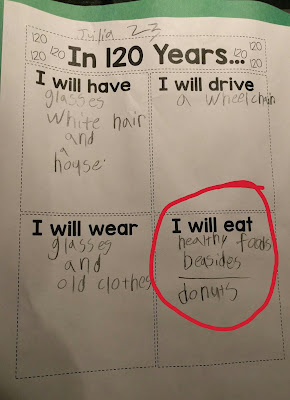 Julia 23
120 120 120 120 120 120
In 120 Years...
I will have
glasses
white hair
and
a
house.
I will drive
a wheelchair
I will wear
glasses
and
old clothes
I will eat
healthy foods
beasides
donuts